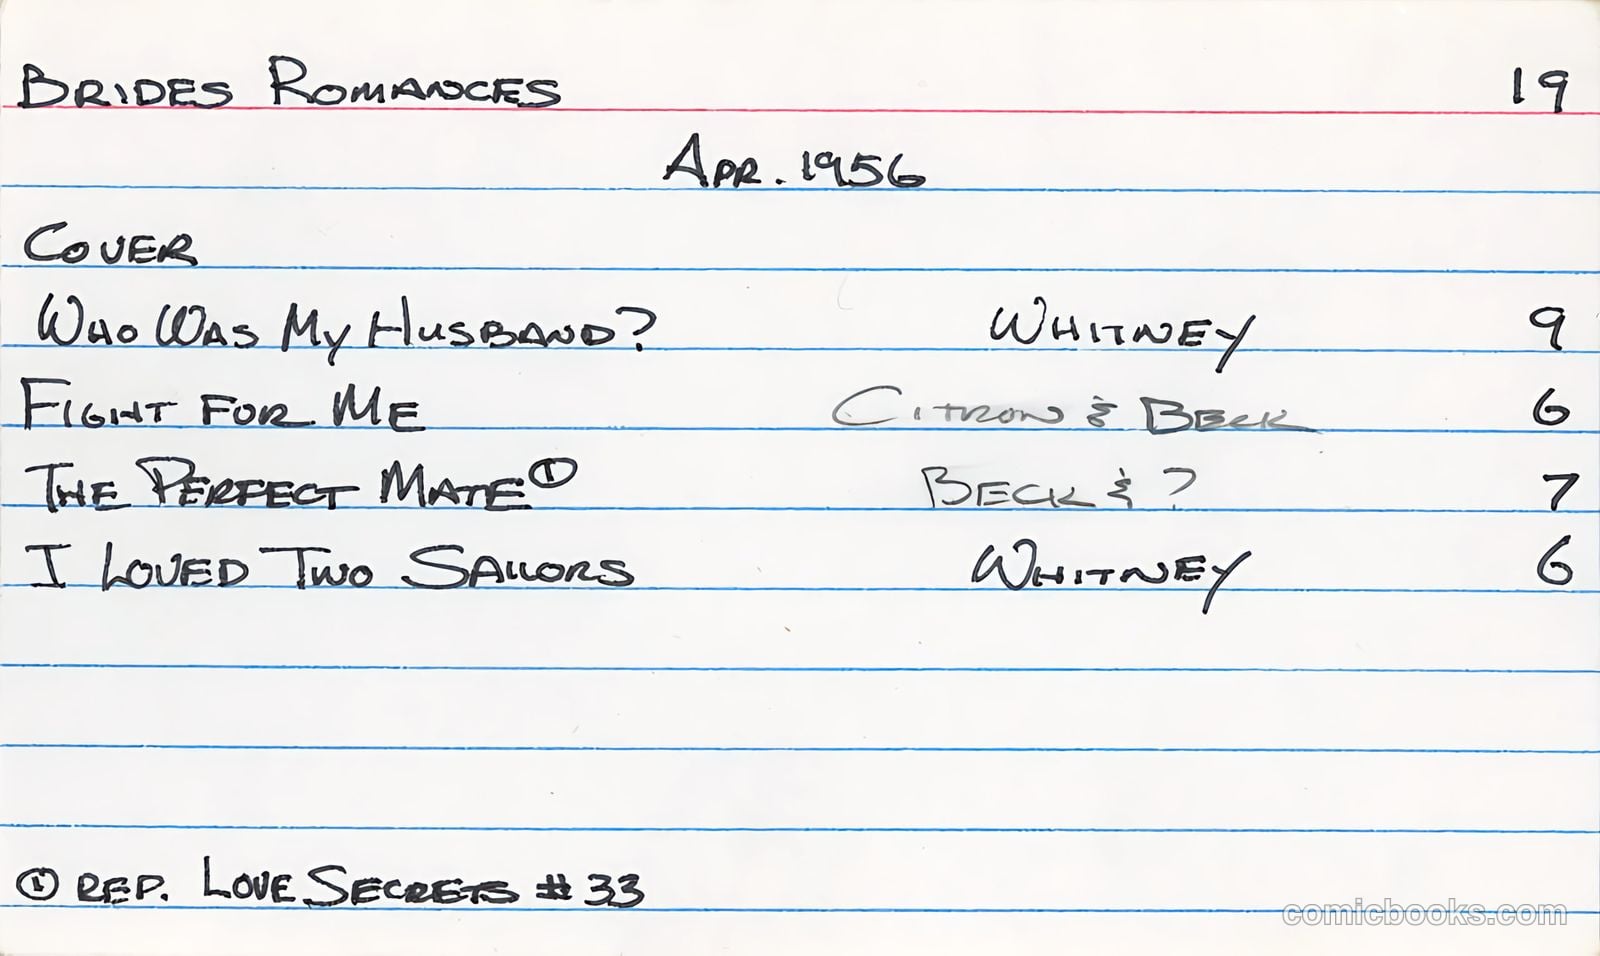 BRIDES ROMANCES 19
APR. 1956
COVER
WHO WAS MY HUSBAND? WHITNEY 9
FIGHT FOR ME CITRON & BECK 6
THE PERFECT MATE① BECK & ? 7
I LOVED TWO SAILORS WHITNEY 6
① REP. LOVE SECRETS # 33
comicbooks.com